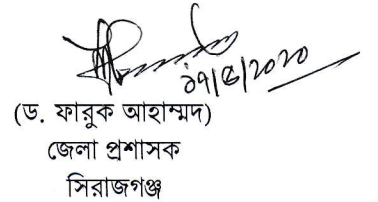 ১৭/৫/২০২০
(ড. ফারুক আহাম্মদ)
জেলা প্রশাসক
সিরাজগঞ্জ